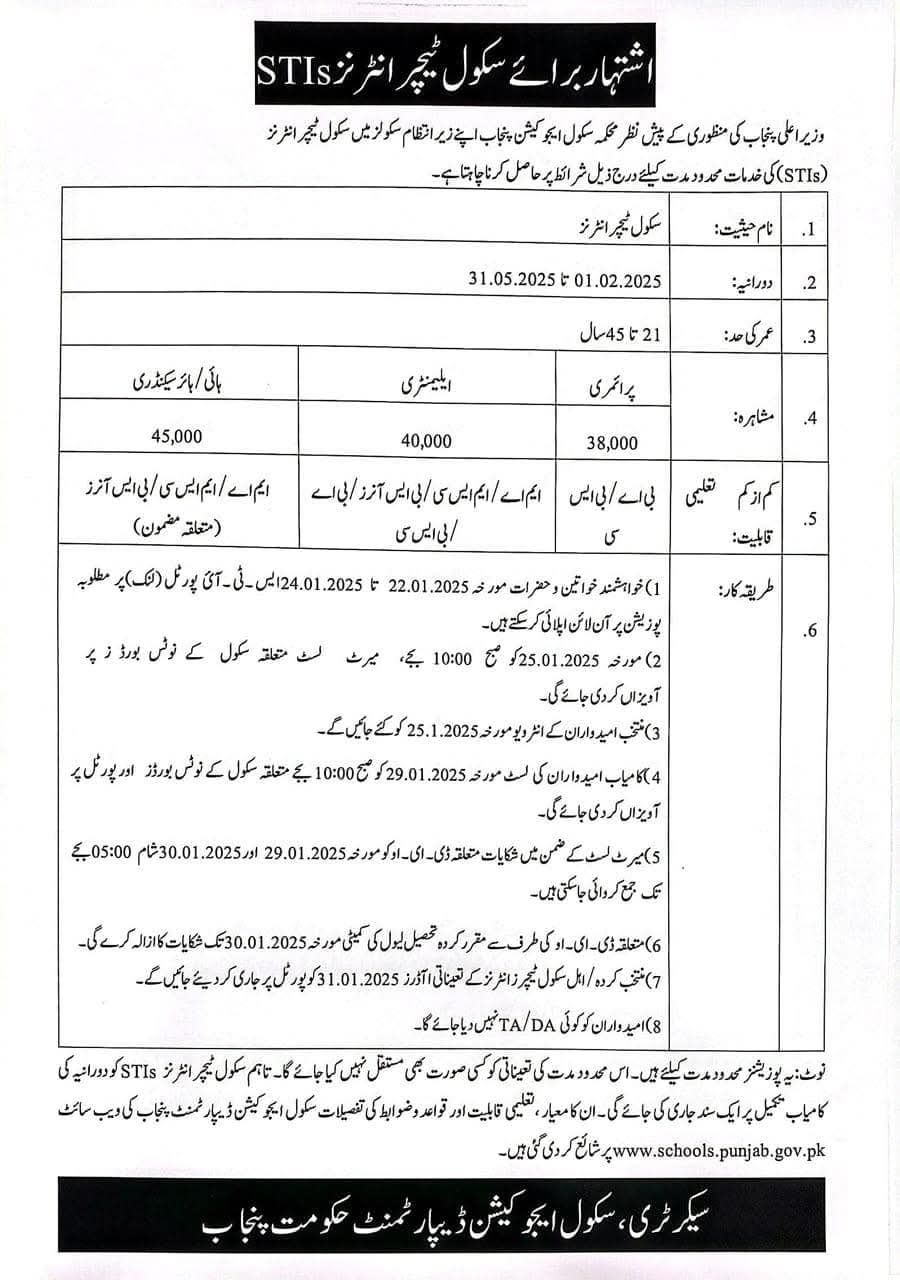 اشتہار برائے سکول ٹیچر انٹرنز STIs
وزیر اعلی پنجاب کی منظوری کے پیش نظر محکمہ سکول ایجوکیشن پنجاب اپنے زیر انتظام سکولز میں سکول ٹیچر انٹرنز
(STIs) کی خدمات محدود مدت کیلئے درج ذیل شرائط پر حاصل کرنا چاہتا ہے۔
1. نام حیثیت: سکول ٹیچر انٹرنز
2. دورانیہ: 01.02.2025 تا 31.05.2025
3. عمر کی حد: 21 تا 45 سال
4. مشاہرہ:
پرائمری ایلیمنٹری ہائی/ہائر سیکنڈری
38,000 40,000 45,000
5. کم از کم تعلیمی
قابلیت:
بی اے/بی ایس
سی
ایم اے/ایم ایس سی/بی ایس آنرز/بی اے
/بی ایس سی
ایم اے/ایم ایس سی/بی ایس آنرز
(متعلقہ مضمون)
6. طریقہ کار:
1) خواہشمند خواتین و حضرات مورخہ 22.01.2025 تا 24.01.2025 ایس-ٹی-آئی پورٹل (لنک) پر مطلوبہ
پوزیشن پر آن لائن اپلائی کر سکتے ہیں۔
2) مورخہ 25.01.2025 کو صبح 10:00 بجے، میرٹ لسٹ متعلقہ سکول کے نوٹس بورڈز پر
آویزاں کر دی جائے گی۔
3) منتخب امیدواران کے انٹرویو مورخہ 25.1.2025 کو کئے جائیں گے۔
4) کامیاب امیدواران کی لسٹ مورخہ 29.01.2025 کو صبح 10:00 بجے متعلقہ سکول کے نوٹس بورڈز اور پورٹل پر
آویزاں کر دی جائے گی۔
5) میرٹ لسٹ کے ضمن میں شکایات متعلقہ ڈی-ای-او کو مورخہ 29.01.2025 اور 30.01.2025 شام 05:00 بجے
تک جمع کروائی جا سکتی ہیں۔
6) متعلقہ ڈی-ای-او کی طرف سے مقرر کردہ تحصیل لیول کی کمیٹی مورخہ 30.01.2025 تک شکایات کا ازالہ کرے گی۔
7) منتخب کردہ/اہل سکول ٹیچرز انٹرنز کے تعیناتی آڈرز 31.01.2025 کو پورٹل پر جاری کر دیئے جائیں گے۔
8) امیدواران کو کوئی TA/DA نہیں دیا جائے گا۔
نوٹ: یہ پوزیشنز محدود مدت کیلئے ہیں۔ اس محدود مدت کی تعیناتی کو کسی صورت بھی مستقل نہیں کیا جائے گا۔ تاہم سکول ٹیچر انٹرنز STIs کو دورانیہ کی
کامیاب تکمیل پر ایک سند جاری کی جائے گی۔ ان کا معیار، تعلیمی قابلیت اور قواعد و ضوابط کی تفصیلات سکول ایجوکیشن ڈیپارٹمنٹ پنجاب کی ویب سائٹ
www.schools.punjab.gov.pk پر شائع کر دی گئی ہیں۔
سیکرٹری، سکول ایجوکیشن ڈیپارٹمنٹ حکومت پنجاب